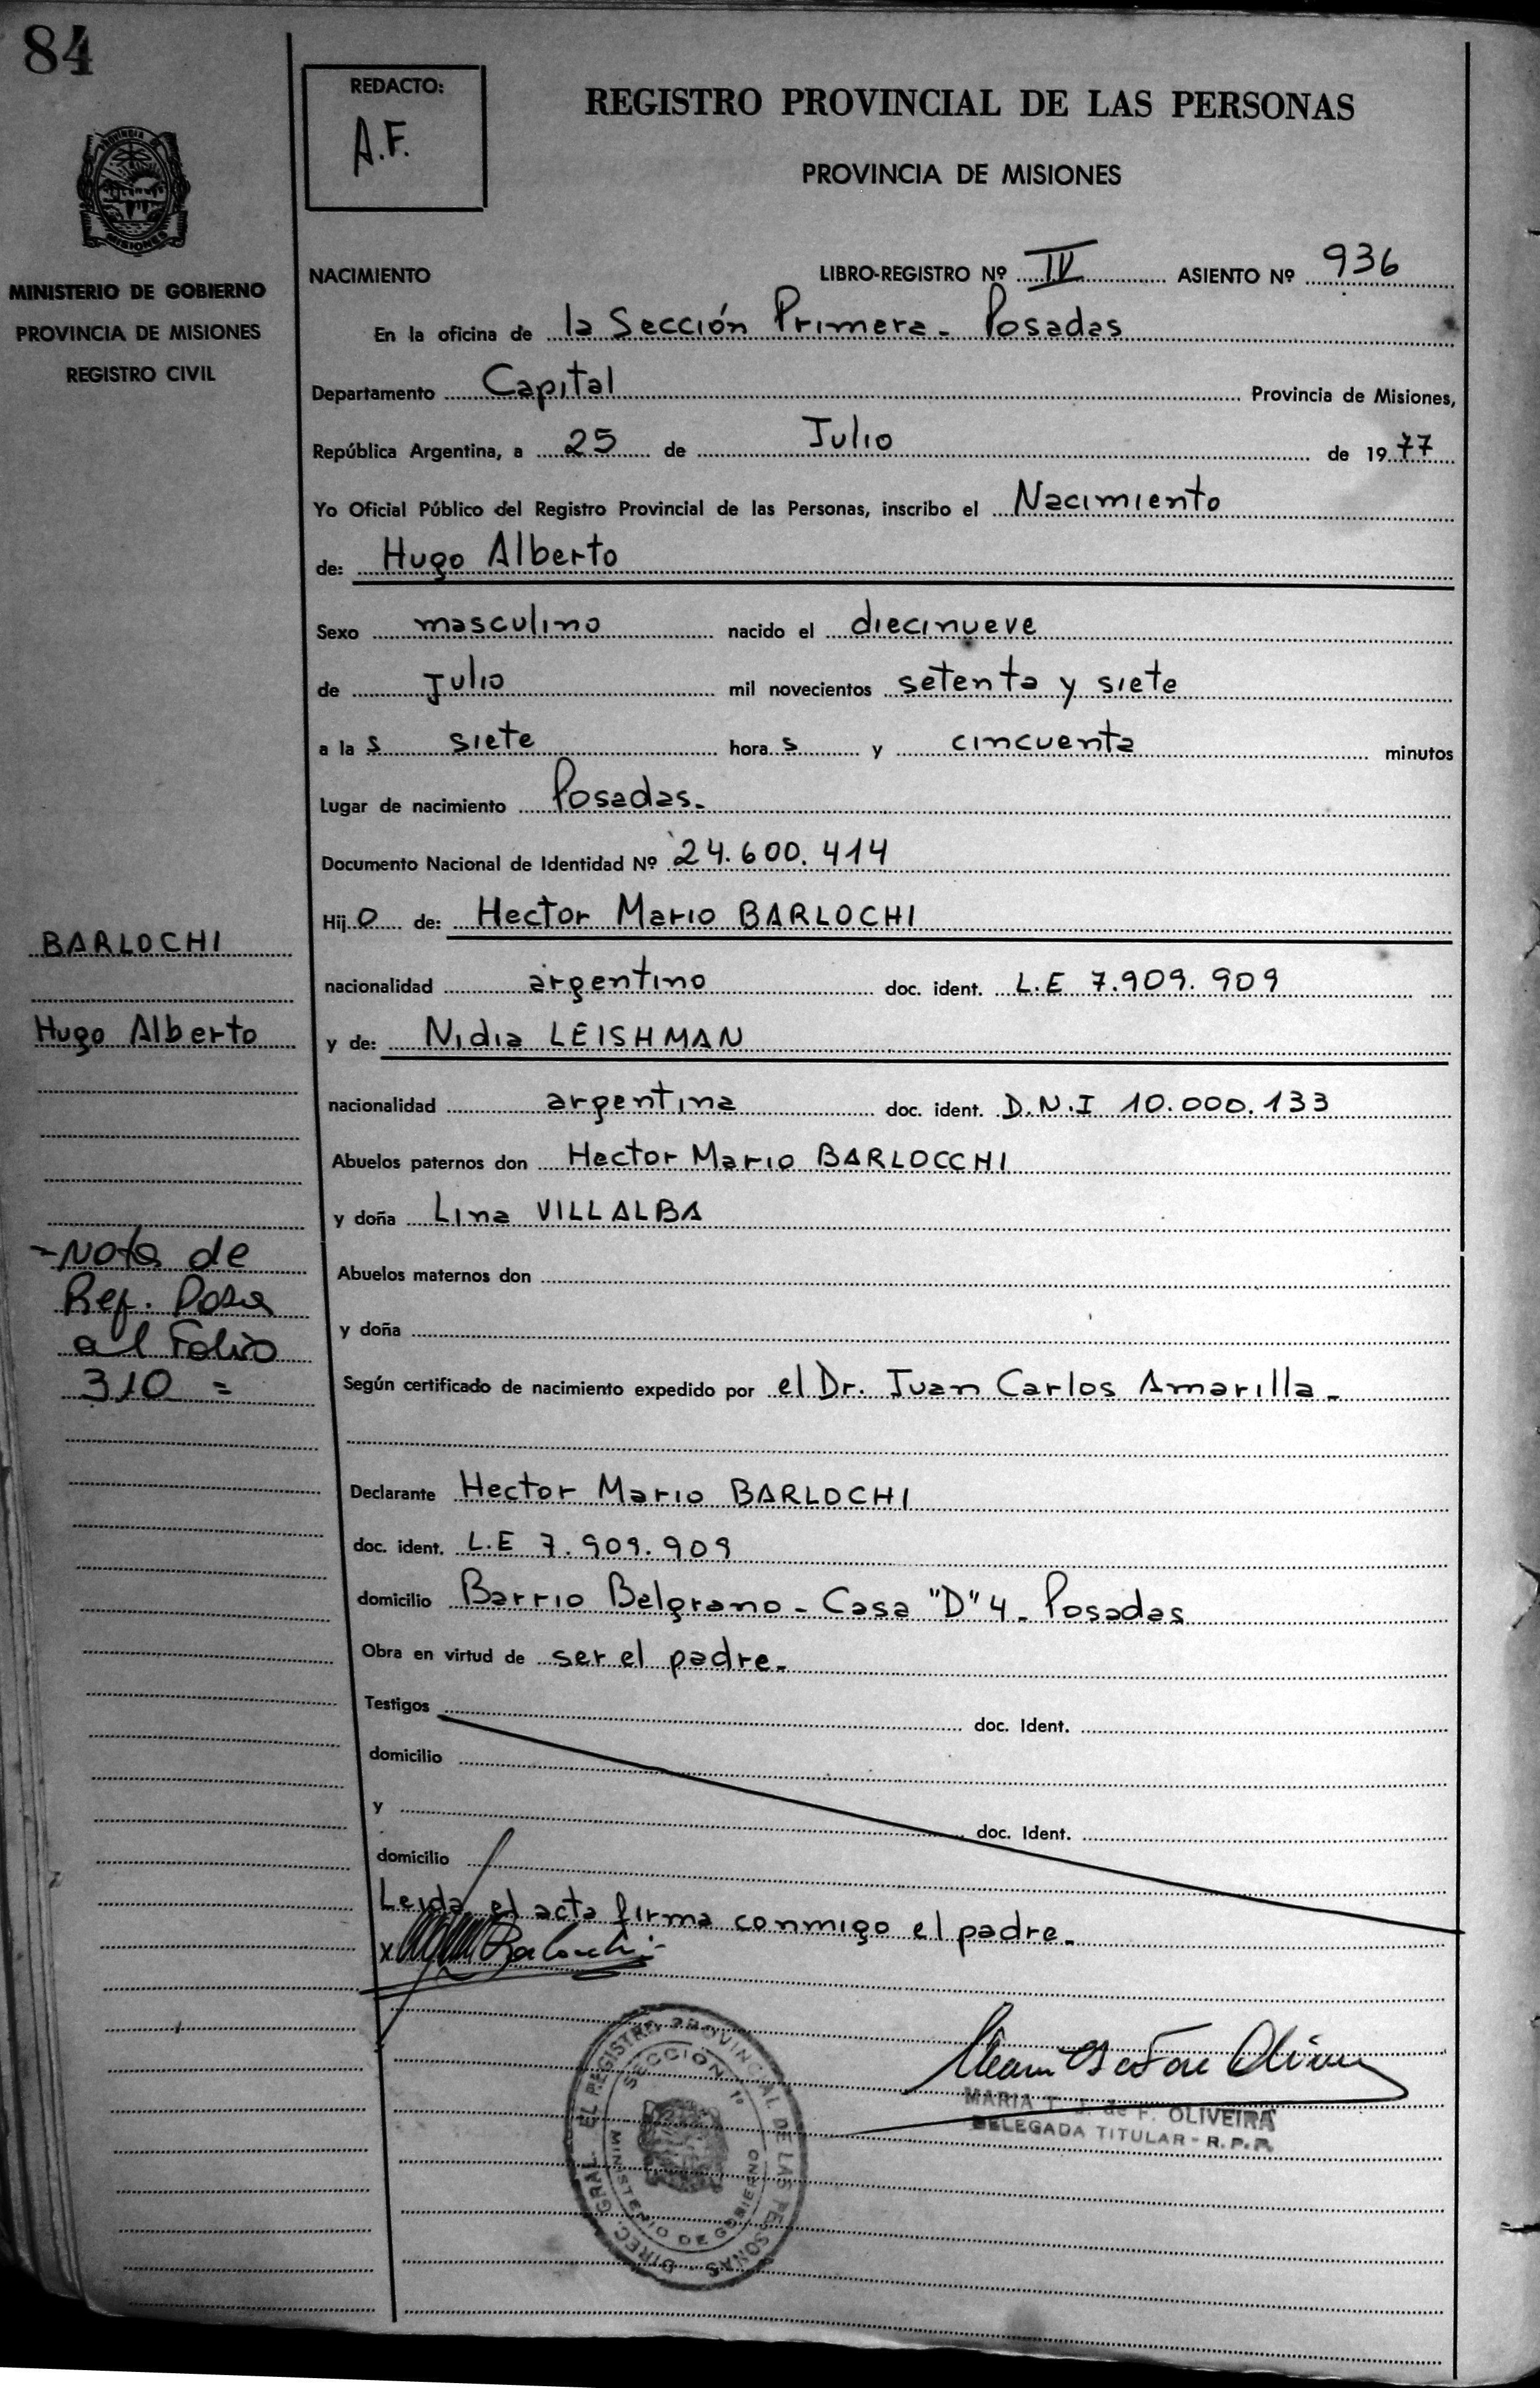 84
REDACTO:
A.F.
REGISTRO PROVINCIAL DE LAS PERSONAS
PROVINCIA DE MISIONES
MISIONES
MINISTERIO DE GOBIERNO
PROVINCIA DE MISIONES
REGISTRO CIVIL
NACIMIENTO LIBRO-REGISTRO Nº IV ASIENTO Nº 936
En la oficina de la Sección Primera - Posadas
Departamento Capital Provincia de Misiones,
República Argentina, a 25 de Julio de 1977
Yo Oficial Público del Registro Provincial de las Personas, inscribo el Nacimiento
de: Hugo Alberto
Sexo masculino nacido el diecinueve
de Julio mil novecientos setenta y siete
a las siete horas y cincuenta minutos
Lugar de nacimiento Posadas.
Documento Nacional de Identidad Nº 24.600.414
Hijo de: Hector Mario BARLOCHI
BARLOCHI
nacionalidad argentino doc. ident. L.E 7.909.909
Hugo Alberto
y de: Nidia LEISHMAN
nacionalidad argentina doc. ident. D.N.I 10.000.133
Abuelos paternos don Hector Mario BARLOCCHI
y doña Lina VILLALBA
- Nota de
Ref. Pasa
al Folio
310 =
Abuelos maternos don
y doña
Según certificado de nacimiento expedido por el Dr. Juan Carlos Amarilla -
Declarante Hector Mario BARLOCHI
doc. ident. L.E 7.909.909
domicilio Barrio Belgrano - Casa "D" 4 - Posadas
Obra en virtud de ser el padre -
Testigos doc. Ident.
domicilio
y doc. Ident.
domicilio
Leida el acta firma conmigo el padre -
x Barlochi
DIREC. GRAL. EL REGISTRO PROVINCIAL DE LAS PERSONAS
SECCION 1º
MINISTERIO DE GOBIERNO
MARIA T. J. de F. OLIVEIRA
DELEGADA TITULAR - R. P. P.